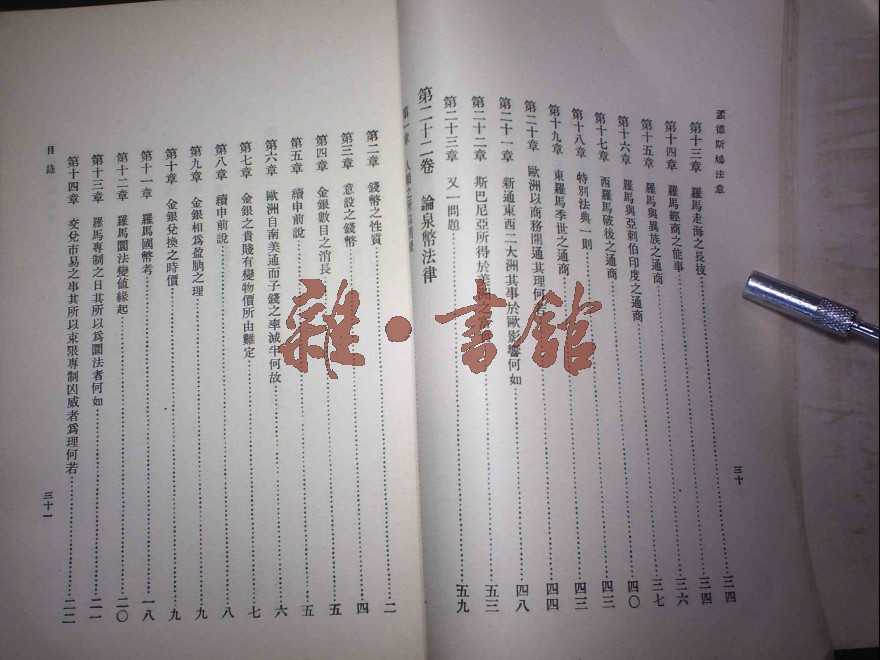 孟德斯鳩法意
第十三章 羅馬走海之長技 三四
第十四章 羅馬經商之能事 三六
第十五章 羅馬與異族之通商 三七
第十六章 羅馬與亞剌伯印度之通商 四〇
第十七章 西羅馬破後之通商 四三
第十八章 特別法典一則 四三
第十九章 東羅馬季世之通商 四四
第二十章 歐洲以商務開通其理何若
第二十一章 新通東西二大洲其事於歐影響何如 四八
第二十二章 斯巴尼亞所得於美洲之 五三
第二十三章 又一問題 五九
第二十二卷 論泉幣法律
第一章
三十
第二章 錢幣之性質 二
第三章 意設之錢幣 四
第四章 金銀數目之消長 五
第五章 續申前說 五
第六章 歐洲自南美通而子錢之率減半何故 六
第七章 金銀之貴賤有變物價所由難定 七
第八章 續申前說 八
第九章 金銀相爲盈朒之理 九
第十章 金銀兌換之時價 九
第十一章 羅馬國幣考 一八
第十二章 羅馬圜法變值緣起 二〇
第十三章 羅馬專制之日其所以爲圜法者何如 二一
第十四章 交兌市易之事其所以束限專制凶威者爲理何若 二二
目錄
三十一
雜·書館